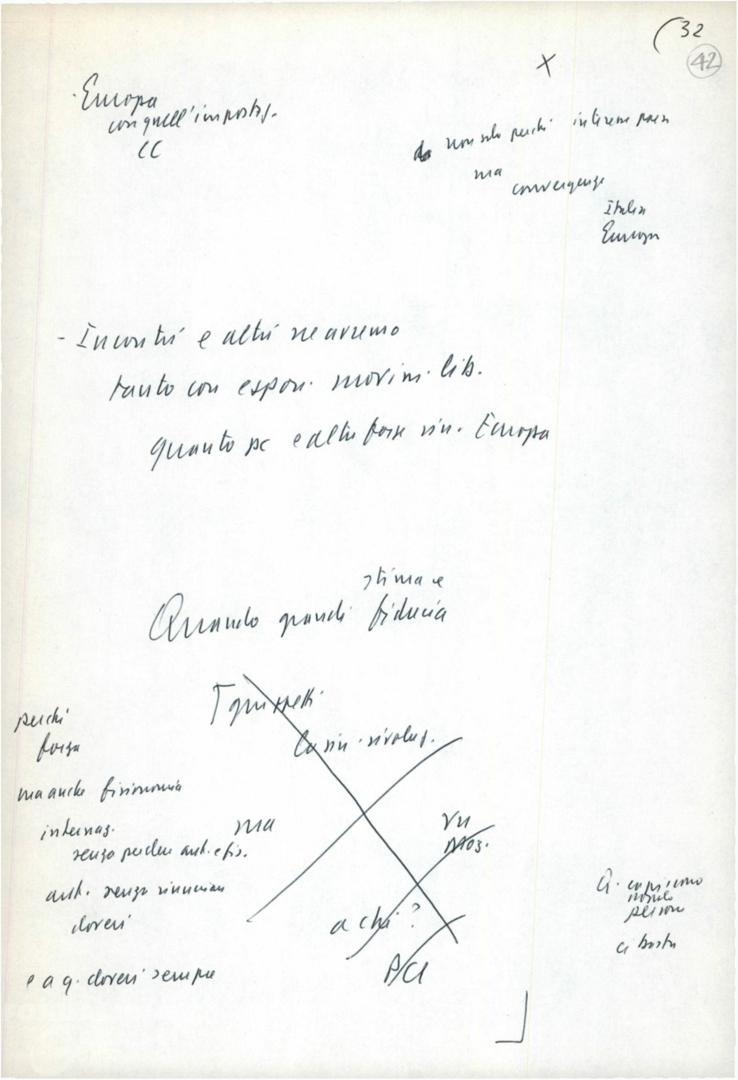 (32
42
X
- Europa
con quell'impostaz.
CC
non solo perché interesse paesi
ma
convergenze
Italia
Europa
- Incontri e altri ne avremo
tanto con espon. movim. lib.
quanto pc e altre forze sin. Europa
stima e
Quando grandi fiducia
lasin. rivoluz.
perché
forza
ma anche fisionomia
internaz.
senza perdere aut. e fis.
aut. senza rinunciare
doveri
e a q. doveri sempre
ma
VN
Moz.
a chi?
PCI
capiscono
ci basta